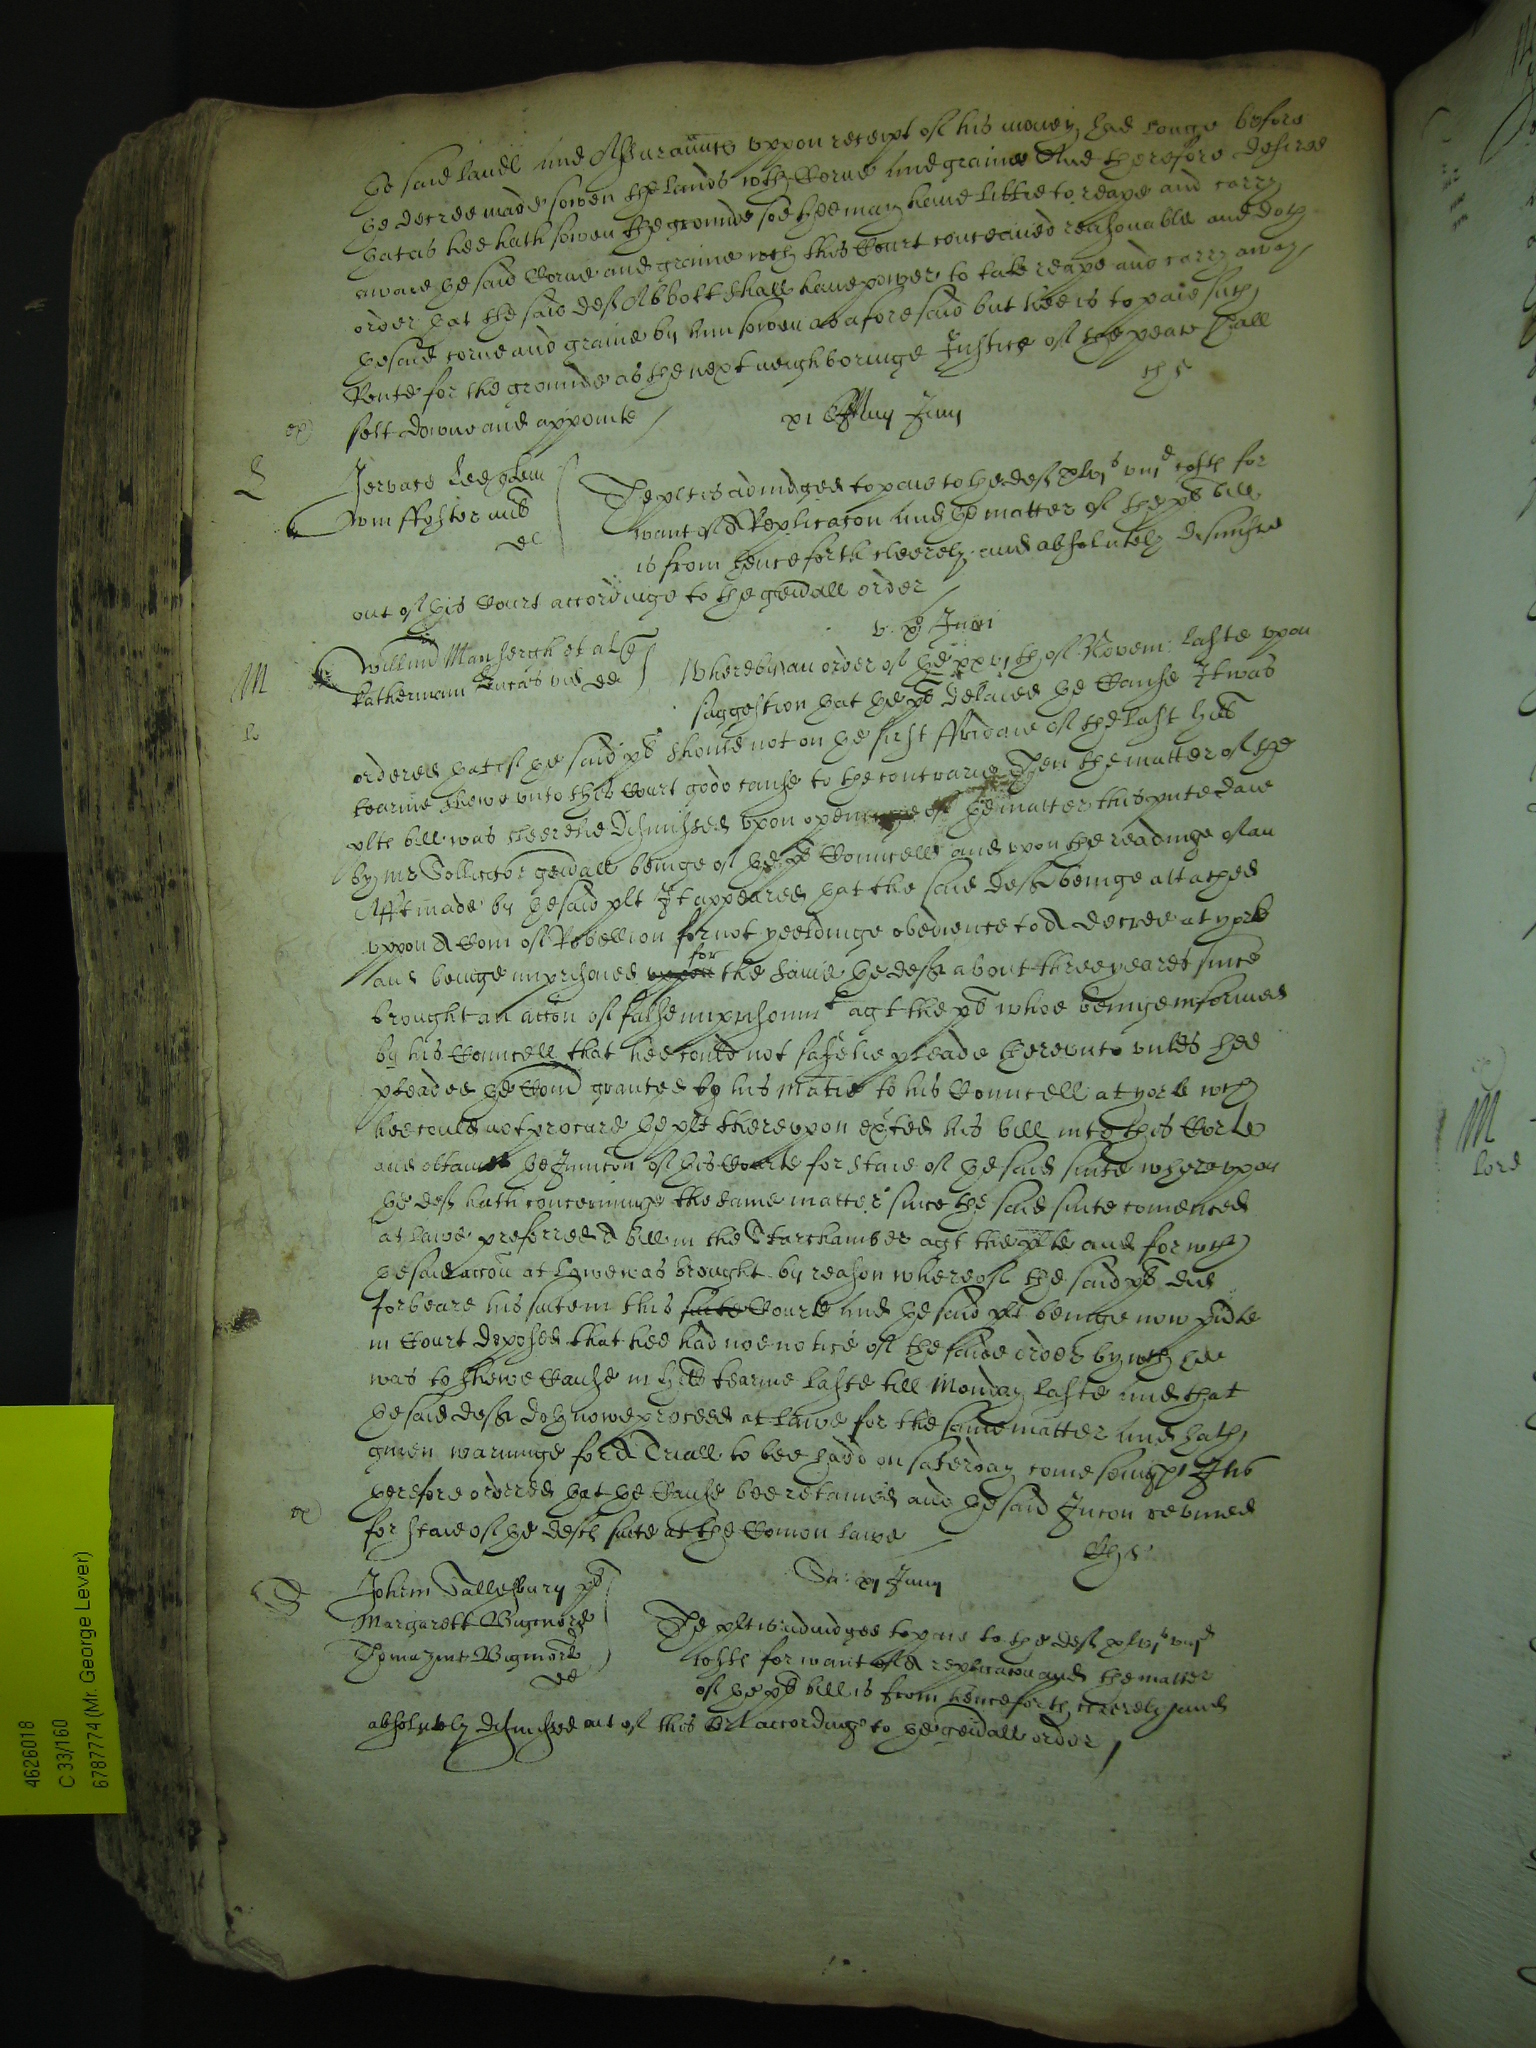 the said landes and Assuraunces vppon receipt of his money had longe before
the decree made sowen the lands wth Corne and graine And therefore desired
that as hee hath sowen the grounds soe hee may have libtie to reape and carry
awaie the said Corne and graine wch this Court conceaved reasonable and doth
order that the said deft Abbott shall have power to take reape and carry away
the said corne and graine by him sowen as aforesaid but hee is to paie such
Rente for the grounde as the next neighboringe Justice of the peace shall
sett downe and appointe /
ex)
xi Junij
L
Jervace Lee plem
Wm ffoster
def
The plt is adiudged to paie to the deft xlvjs viijd costs for
want of A Replicacon and the matter of the plts bill
is from henceforth cleerely and absolutely dismissed
out of this Court accordinge to the genrall order /
M
v. xj Junij
Willm Mansergh et al plts
def
Whereby an order of the xxvjth of Novem: laste vpon
suggestion that the plt delaied the Cause It was
ordered that if the said plt should not on the first ffridaie of the last
tearme shewe vnto this Court good cause to the contrarie Then the matter of the
plts bill was cleerelie dismissed vpon openinge of the matter this pnte daie
by Mr Sollicitor genrall beinge of the plts Councell and vpon the readinge of an
Afft made by the said plt It appeared that the said deft beinge attached
vppon A Com of Rebellion for not yeeldinge obedience to A decree at yorke
and beinge imprisoned vppon for the same the deft about three yeares since
brought an accon of false imprisonmt agt the plt whoe beinge informed
by his Councell that hee could not safelie pleade therevnto vnles hee
pleaded the Comn graunted by his Matie to his Councell at yorke wch
hee could not procure the plt therevpon exhted his bill into this Corte
and obtained the Iniuncon of this Courte for staie of the said suite wherevpon
the deft hath concerninge the same matter since the said suite comenced
at lawe preferred A bill in the Starchamber agt the plte and for wch
the said accon at Lawe was brought by reason whereof the said plt did
forbeare his suite in this suite Courte And the said plt beinge now psente
in Court deposed that hee had noe notice of the said order by wch hee
was to shewe Cause in tearme laste till Monday laste and that
the said deft doth nowe proceed at lawe for the same matter and hath
given warninge for A Triall to bee hadd on saterday come It is
therefore ordered that the Cause bee retained and the said Iniuncon revived
for staie of the defts suite at the Comon lawe /
ex)
S
Sa: xj Junij
John Sallesbury plt
Margarett Bigmore
Thomazine Bigmore
def
The plt is adiudged to paie to the deft xlvjs viijd
costs for want of A replicacon and the matter
of the plts bill is from henceforth cleerely and
absolutely dismissed out of this Crt accordinge to the genrall order /
M
lord
4626018
C 33/160
6787774 (Mr. George Lever)